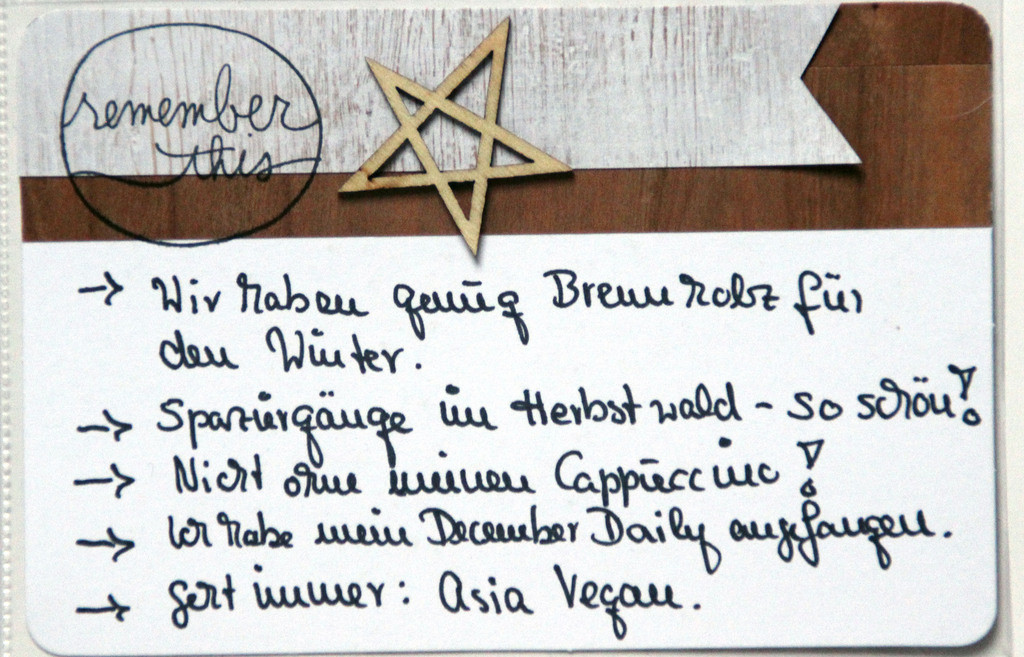 remember
this
→ Wir haben genug Brennholz für
den Winter.
→ Spaziergänge im Herbstwald - so schön!
→ Nicht ohne meinen Cappuccino!
→ Ich habe mein December Daily angefangen.
→ geht immer: Asia Vegan.